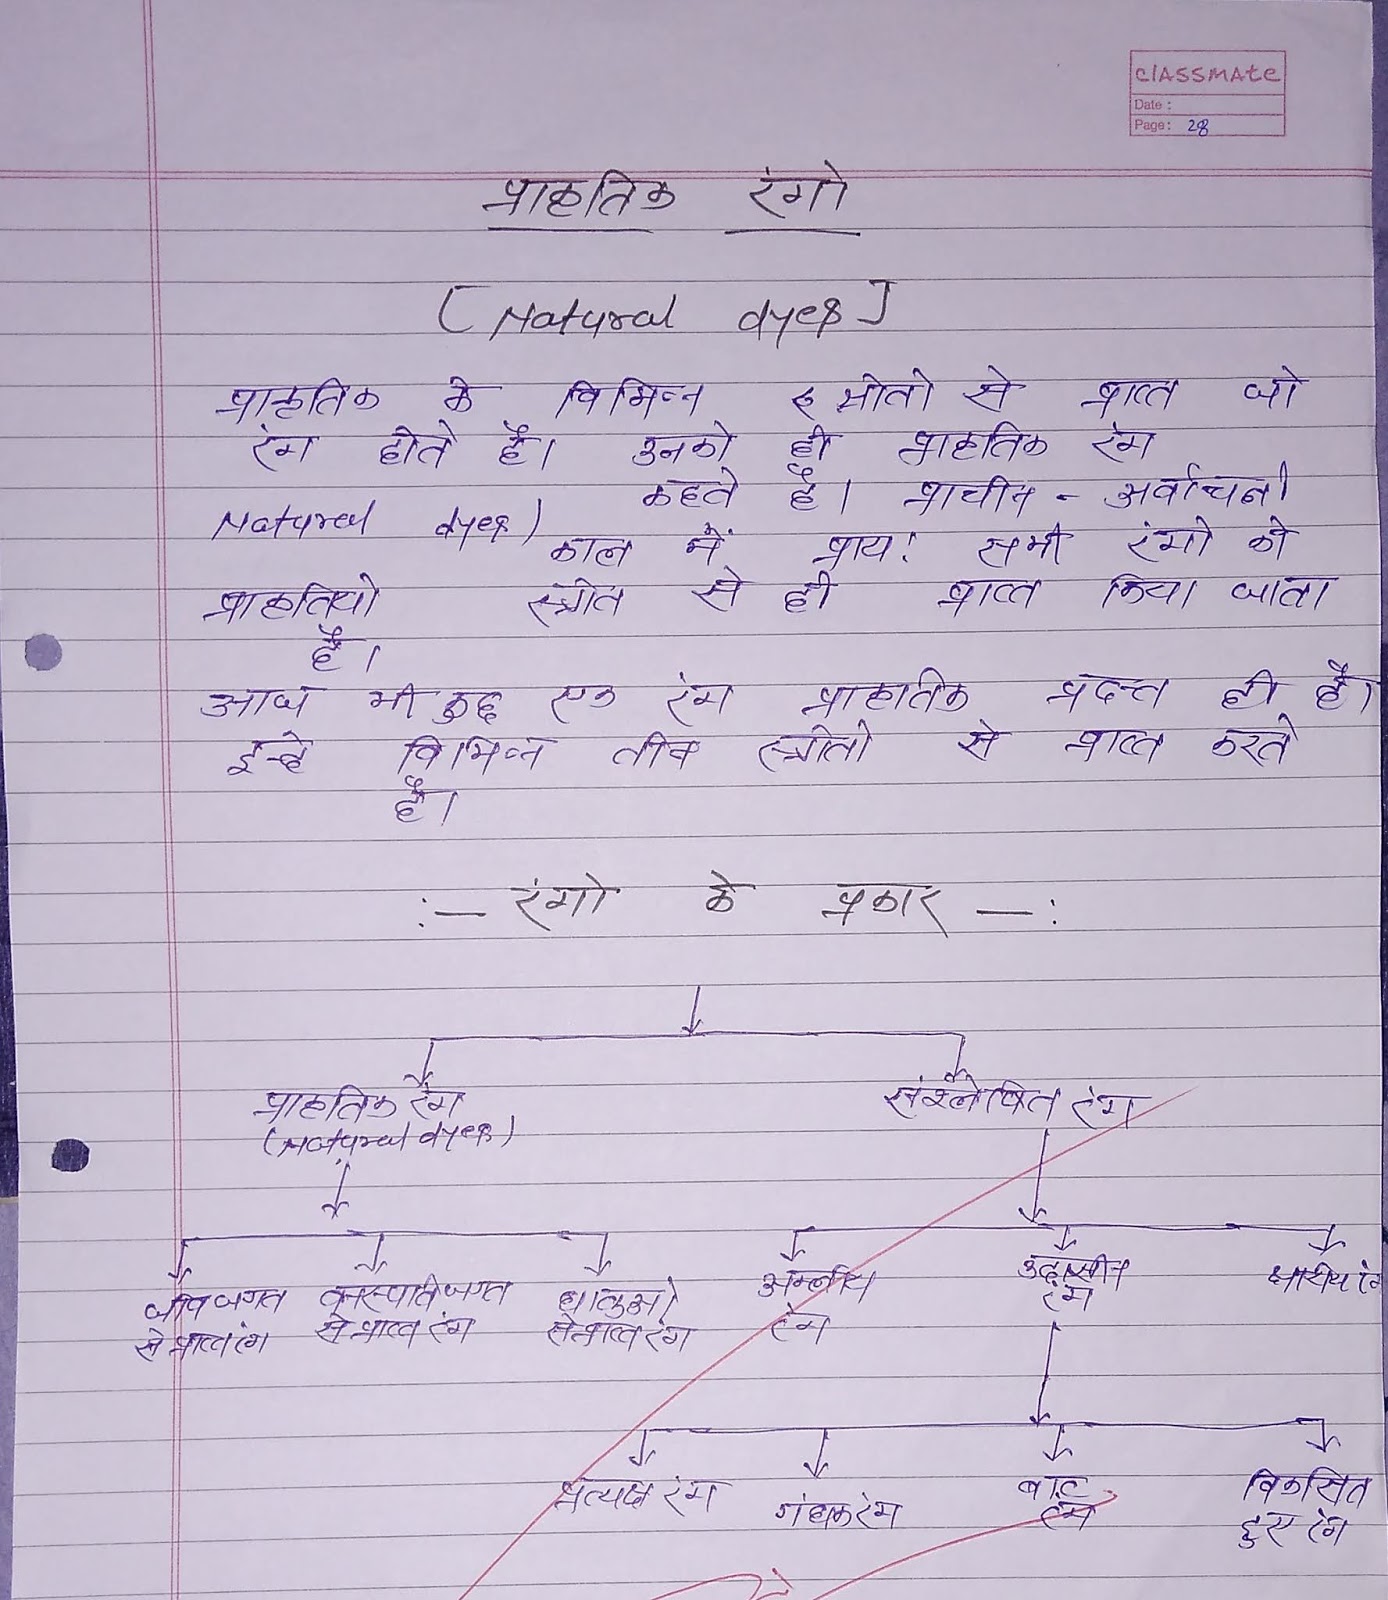 classmate
Date :
Page: 28
प्राकृतिक रंगो
[Natural dyes]
प्राकृतिक के विभिन्न स्रोतो से प्राप्त जो
रंग होते है। उनको ही प्राकृतिक रंग
Natural dyes) कहते है। प्राचीन - अर्वाचन
काल में प्राय: सभी रंगो को
प्राकृतियो स्त्रोत से ही प्राप्त किया जाता
है।
आज भी कुछ एक रंग प्राकृतिक प्रदत्त ही है।
इन्हे विभिन्न तीन स्त्रोतो से प्राप्त करते
है।
:— रंगो के प्रकार —:
प्राकृतिक रंग संश्लेषित रंग
(Natural dyes)
जीव जगत वनस्पति जगत धातुओ अम्लीय उदासीन क्षारीय रंग
से प्राप्त रंग से प्राप्त रंग से प्राप्त रंग रंग रंग
प्रत्यक्ष रंग गंधक रंग वाट विकसित
रंग हुए रंग